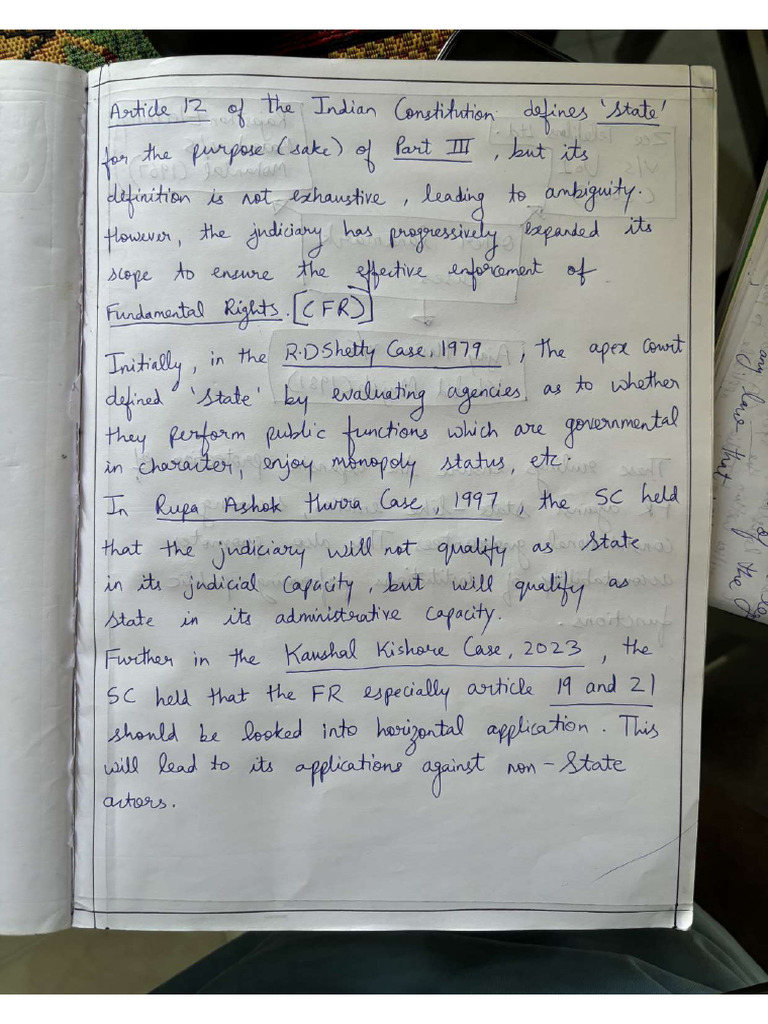 Article 12 of the Indian Constitution defines 'State'
for the purpose (sake) of Part III, but its
definition is not exhaustive, leading to ambiguity.
However, the judiciary has progressively expanded its
scope to ensure the effective enforcement of
Fundamental Rights. [(FR)]
Initially, in the R.D Shetty Case, 1979, the apex court
defined 'State' by evaluating agencies as to whether
they perform public functions which are governmental
in character, enjoy monopoly status, etc.
In Rupa Ashok Hurra Case, 1997, the SC held
that the judiciary will not qualify as State
in its judicial capacity, but will qualify as
state in its administrative capacity.
Further in the Kaushal Kishore Case, 2023, the
SC held that the FR especially article 19 and 21
should be looked into horizontal application. This
will lead to its applications against non-State
actors.
any
law that
of the